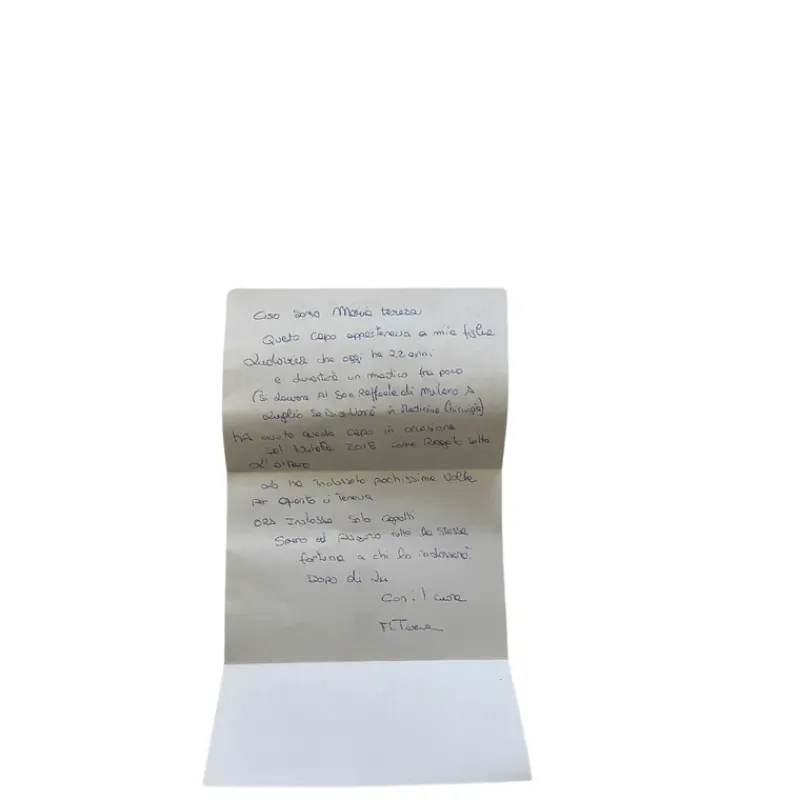 Ciao sono Maria Teresa
Questo capo apparteneva a mia figlia
Ludovica che oggi ha 22 anni
e diventerà un medico fra poco
(si laurea Al San Raffaele di Milano A
Luglio se Dio Vorrà in Medicina Chirurgia)
ha avuto questo capo in occasione
del Natale 2018 come Regalo sotto
L'albero
Lo ha indossato pochissime volte
Per Quanto ci Teneva
ora Indossa solo cappotti
Spero ed Auguro tutta la stessa
fortuna a chi lo indosserà
Dopo di Lei
Con il cuore